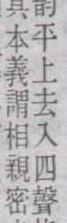 韵平上去入四聲
其本義謂相親密